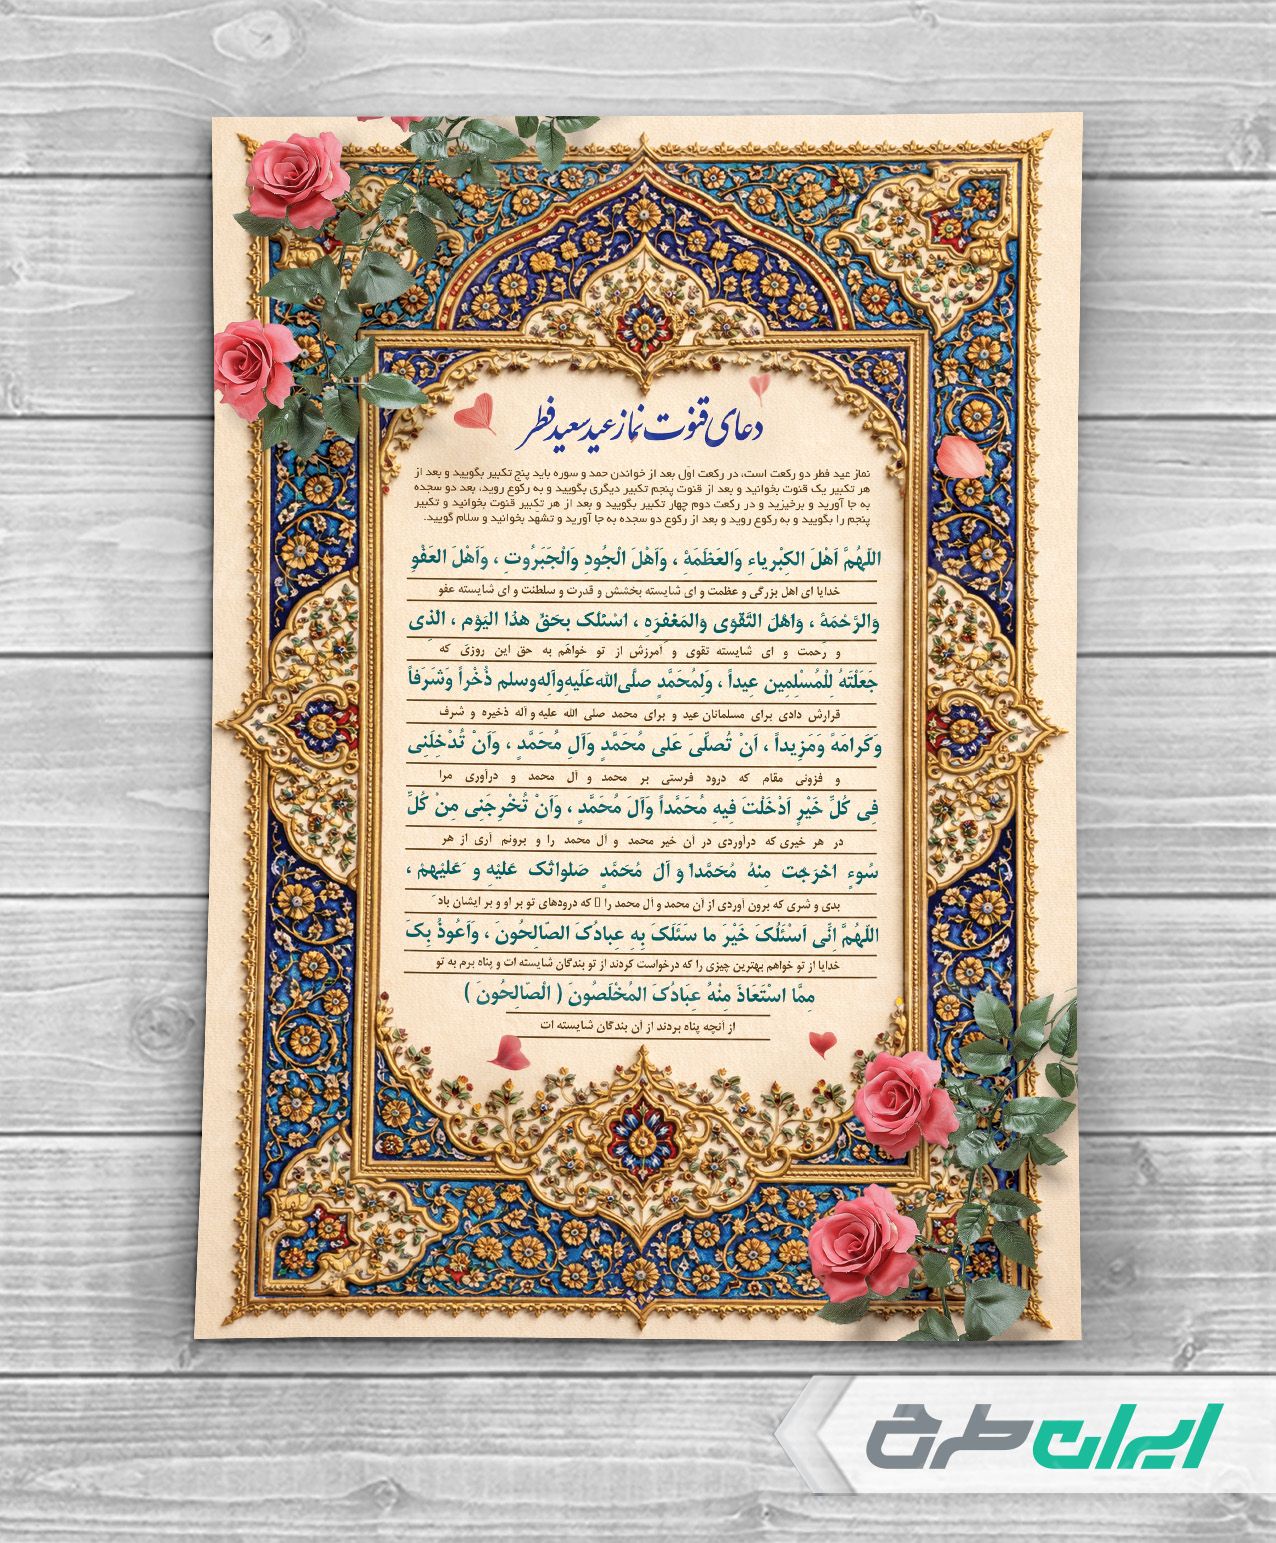 دعای قنوت نماز عید سعید فطر
نماز عید فطر دو رکعت است، در رکعت اوّل بعد از خواندن حمد و سوره باید پنج تکبیر بگویید و بعد از
هر تکبیر یک قنوت بخوانید و بعد از قنوت پنجم تکبیر دیگری بگویید و به رکوع روید، بعد دو سجده
به جا آورید و برخیزید و در رکعت دوم چهار تکبیر بگویید و بعد از هر تکبیر قنوت بخوانید و تکبیر
پنجم را بگویید و به رکوع روید و بعد از رکوع دو سجده به جا آورید و تشهد بخوانید و سلام گویید.
اللّهُمَّ اَهْلَ الكِبْرِیاءِ وَالعَظَمَةِ ، وَاَهْلَ الْجُودِ وَالْجَبَرُوتِ ، وَاَهْلَ العَفْوِ
خدایا ای اهل بزرگی و عظمت و ای شایسته بخشش و قدرت و سلطنت و ای شایسته عفو
وَالرَّحْمَةِ ، وَاَهْلَ التَّقْوی والمَغْفِرَهِ ، اَسْئَلُکَ بِحَقِّ هذَا الیَوْمِ ، الَّذِی
و رحمت و ای شایسته تقوی و آمرزش از تو خواهم به حق این روزی که
جَعَلْتَهُ لِلْمُسْلِمِین عِیداً ، وَلِمُحَمَّدٍ صلَّی‌الله‌عَلَیهِ‌وآلِه‌وسلم ذُخْراً وَشَرَفاً
قرارش دادی برای مسلمانان عید و برای محمد صلی الله علیه و آله ذخیره و شرف
وَکَرامَهً وَمَزِیداً ، اَنْ تُصلِّیَ عَلی مُحَمَّدٍ وَآلِ مُحَمَّدٍ ، وَاَنْ تُدْخِلَنِی
و فزونی مقام که درود فرستی بر محمد و آل محمد و درآوری مرا
فِی کُلِّ خَیْرٍ اَدْخَلْتَ فِیهِ مُحَمَّداً وَآلَ مُحَمَّدٍ ، وَاَنْ تُخْرِجَنِی مِنْ کُلِّ
در هر خیری که درآوردی در آن خیر محمد و آل محمد را و برونم آری از هر
سُوءٍ اَخْرَجْتَ مِنْهُ مُحَمَّداً وَ آلَ مُحَمَّدٍ صَلَواتُکَ عَلَیْهِ وَ عَلَیْهِمْ ،
بدی و شری که برون آوردی از آن محمد و آل محمد را که درودهای تو بر او و بر ایشان باد
اللّهُمَّ اِنِّی اَسْئَلُکَ خَیْرَ ما سَئَلَکَ بِهِ عِبادُکَ الصّالِحُونَ ، وَاَعُوذُ بِکَ
خدایا از تو خواهم بهترین چیزی را که درخواست کردند از تو بندگان شایسته ات و پناه برم به تو
مِمَّا اسْتَعَاذَ مِنْهُ عِبَادُکَ المُخْلَصُونَ ( الْصّالِحُونَ )
از آنچه پناه بردند از آن بندگان شایسته ات
ایران طرح